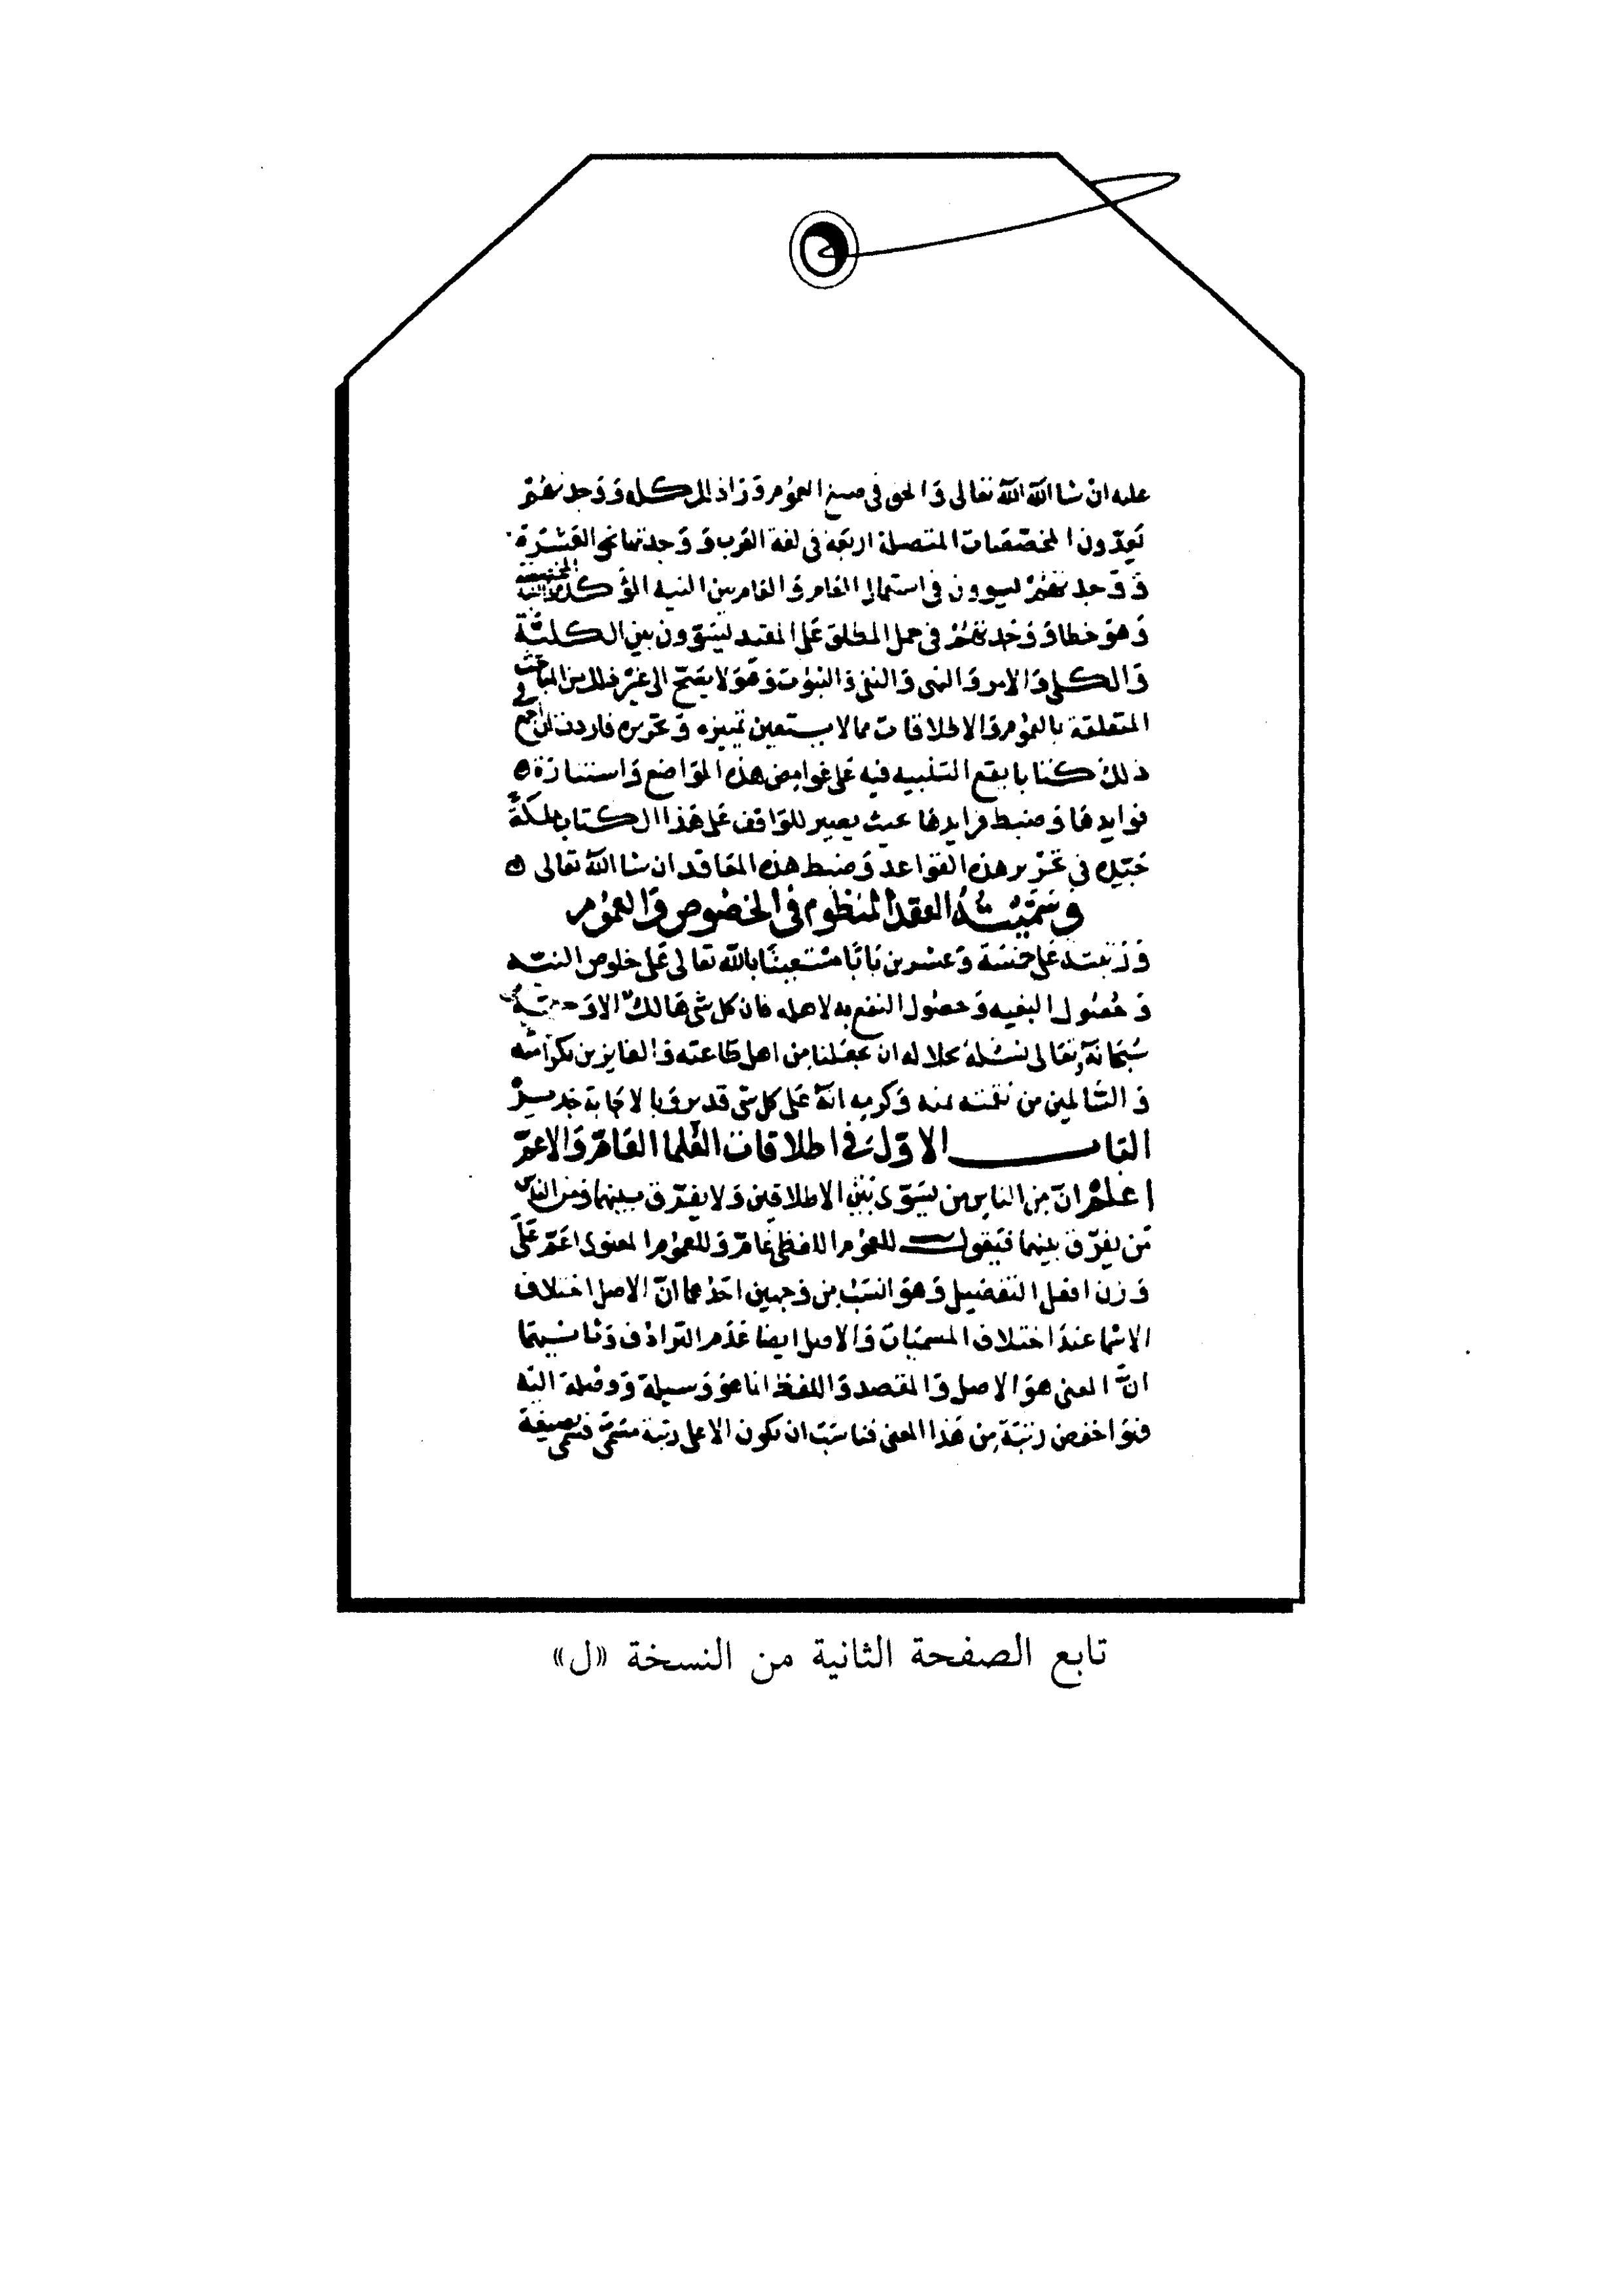 عليه ان شا الله الله تعالى والحق في صيغ العموم وراذلك كله ووجدتهم
يعدون المخصصات المتصلة اربعة في لغة العرب ووجدتها نحو العشرة
ووجدتهم يسوون في استعمال العام والعام بين النية المؤكدة والنية المخصصة
وهو خطا ووجدتهم في حمل المطلق على المقيد يسوون بين الكلية
والكلي والامر والنهي والنفي والثبوت وهو لا يصح الى غير ذلك من المباحث
المتعلقة بالعموم والاطلاقات مما لا يستعين تمييزه وتحريره فاردت ان اجمع في
ذلك كتابا يقع التنبيه فيه على غوامض هذه المواضع واستنارة
فوايدها وضبط فرايدها بحيث يصير للواقف على هذا الكتاب ملكة
جيدة في تحرير هذه القواعد وضبط هذه المعاقد ان شا الله تعالى
وسميته العقد المنظوم في الخصوص والعموم
ورتبته على خمسة وعشرين بابا مستعينا بالله تعالى على خلوص النية
وحصول البغيه وحصول النفع به لاهله فان كل شي هالك الا وجهه
سبحانه وتعالى نسئله جلاله ان يجعلنا من اهل طاعته والفايزين بكرامته
والسالمين من نقمته بمنه وكرمه انه على كل شي قدير وبالاجابة جدير
الباب الاول في اطلاقات العلما العام والاعم
اعلم ان من الناس من يسوي بين الاطلاقين ولا يفرق بينهما ومن الناس
من يفرق بينهما فيقول للعموم اللفظي عام وللعموم المعنوي اعم على
وزن افعل التفضيل وهو انسب من وجهين احدهما ان الاصل اختلاف
الاسما عند اختلاف المسميات والاصل ايضا عدم الترادف وثانيهما
ان المعنى هو الاصل والمقصد واللفظ انما هو وسيلة ووصلة اليه
فهو اخفض رتبة من هذا المعنى فناسب ان يكون الاعلى رتبة مسمى بصيغة
تابع الصفحة الثانية من النسخة «ل»